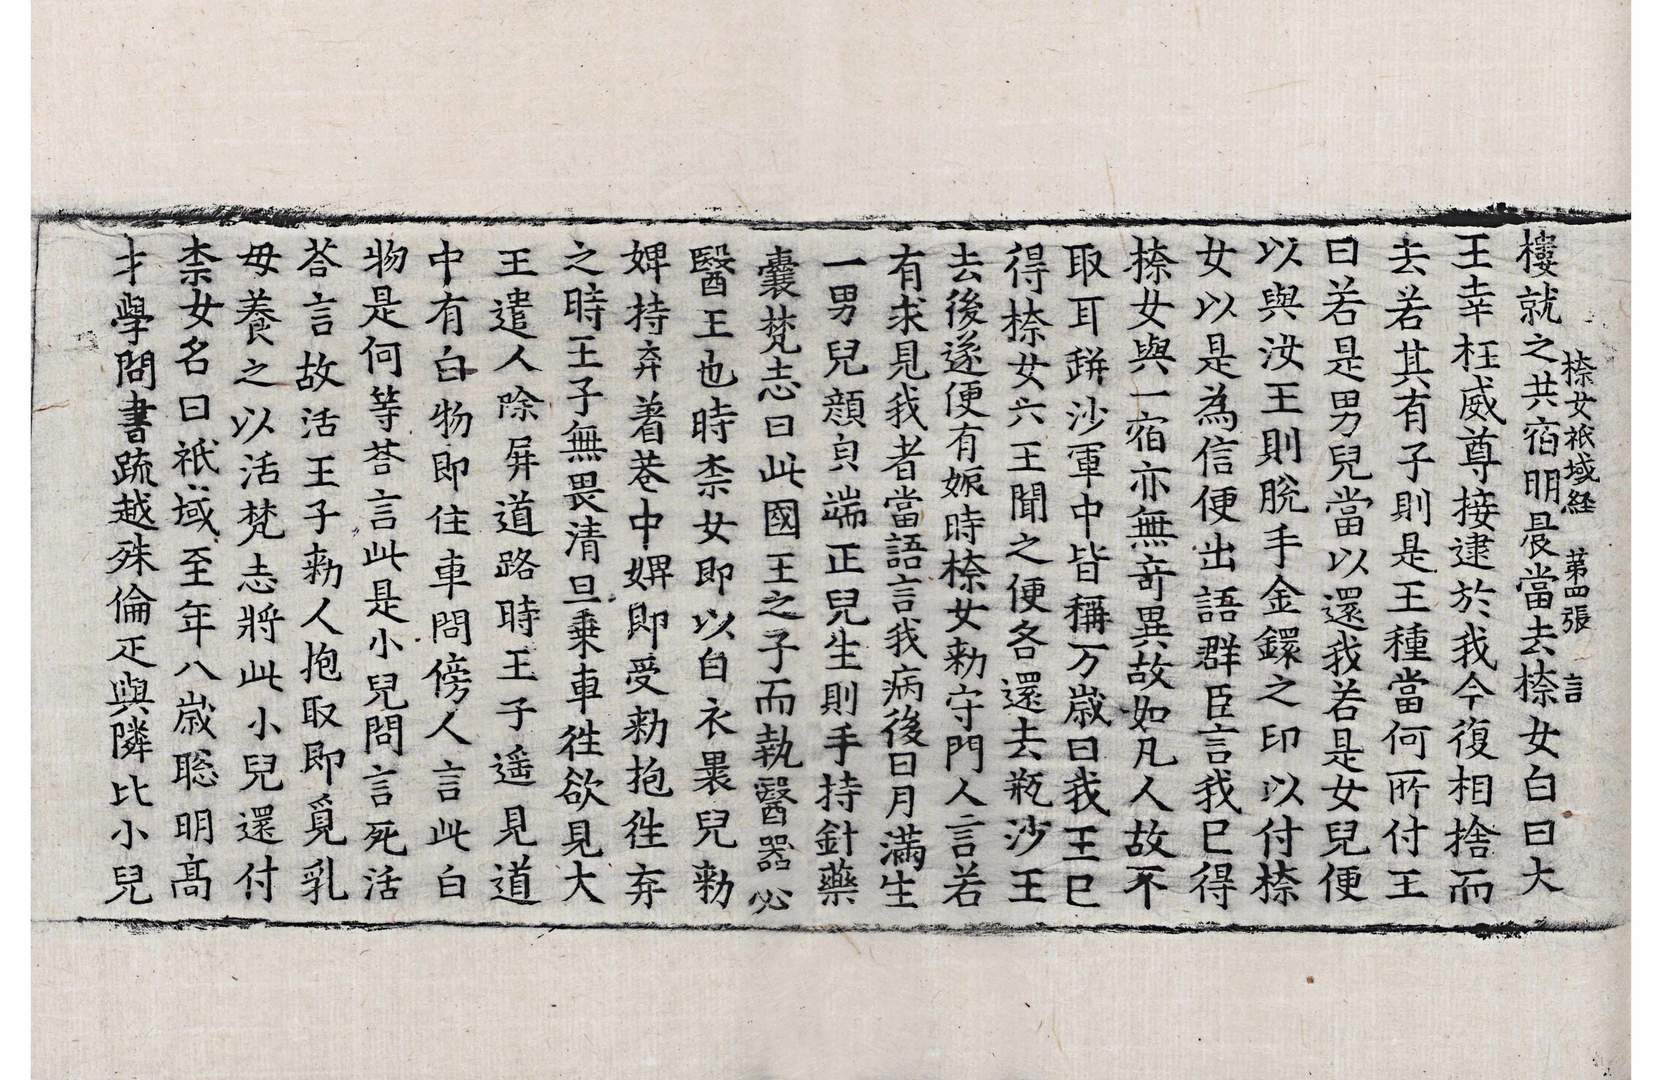 㮈女祇域経 第四張 言
樓就之共宿明晨當去㮈女白曰大
王幸枉威尊接逮於我今復相捨而
去若其有子則是王種當何所付王
曰若是男兒當以還我若是女兒便
以與汝王則脫手金鐶之印以付㮈
女以是為信便出語群臣言我已得
㮈女與一宿亦無奇異故如凡人故不
取耳蓱沙軍中皆稱万歲曰我王已
得㮈女六王聞之便各還去蓱沙王
去後遂便有娠時㮈女勑守門人言若
有求見我者當語言我病後日月滿生
一男兒顏皃端正兒生則手持針藥
囊梵志曰此國王之子而執醫器必
醫王也時柰女即以白衣裹兒勑
婢持弃著巷中婢即受勑抱徃弃
之時王子無畏清旦乗車徃欲見大
王遣人除屏道路時王子遥見道
中有白物即住車問傍人言此白
物是何等荅言此是小兒問言死活
荅言故活王子勑人抱取即覓乳
母養之以活梵志將此小兒還付
柰女名曰祇域至年八歲聡明髙
才學問書疏越殊倫疋與隣比小兒